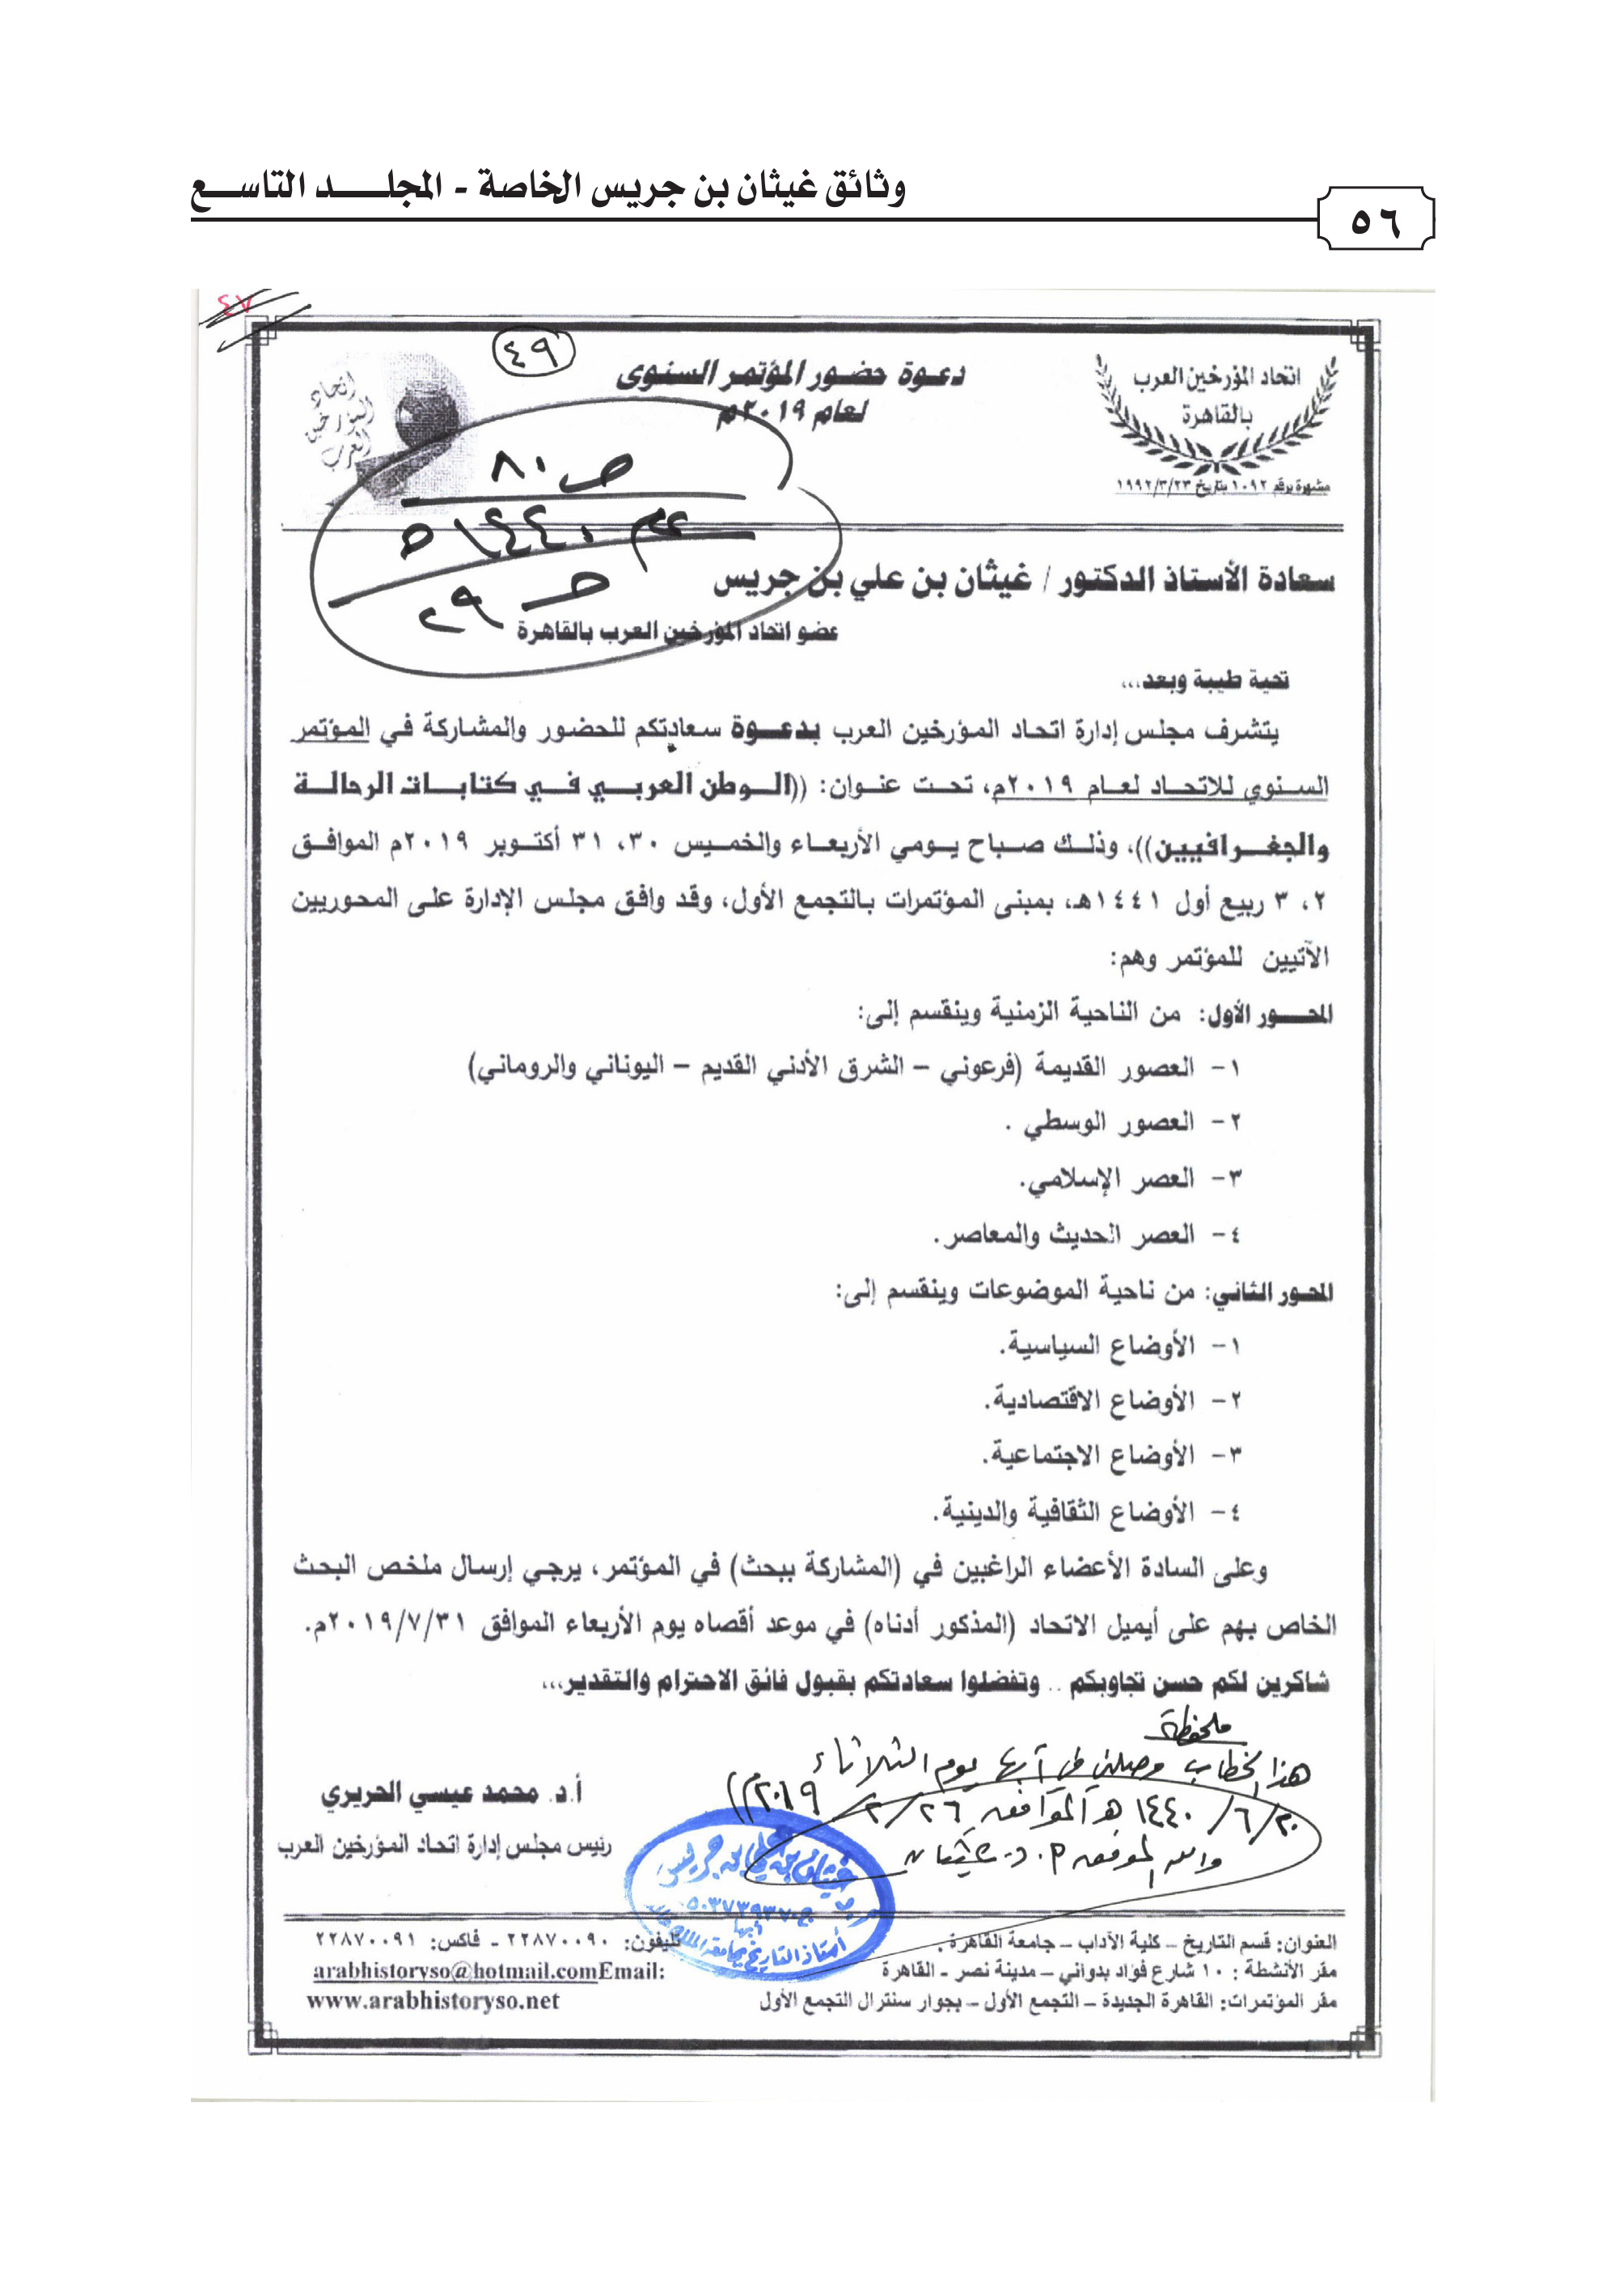 وثائق غيثان بن جريس الخاصة - المجلـــد التاســـع
٥٦
٤٧
٤٩
اتحاد المؤرخين العرب
بالقاهرة
مشهرة برقم ١٠٩٢ بتاريخ ١٩٩٢/٣/٢٣
دعوة حضور المؤتمر السنوى
لعام ٢٠١٩م
اتحاد
المؤرخين
العرب
ص ٨٠
١٤٤٠ ه
٢٩
سعادة الأستاذ الدكتور / غيثان بن علي بن جريس
عضو اتحاد المؤرخين العرب بالقاهرة
تحية طيبة وبعد...
يتشرف مجلس إدارة اتحاد المؤرخين العرب بدعـوة سعادتكم للحضور والمشاركة في المؤتمر
السنوي للاتحاد لعام ٢٠١٩م، تحت عنوان: ((الـوطن العربـي فـي كتابـات الرحالـة
والجغـرافيين))، وذلـك صباح يـومي الأربعـاء والخميس ٣٠، ٣١ أكتـوبر ٢٠١٩م الموافـق
٢، ٣ ربيع أول ١٤٤١هـ، بمبنى المؤتمرات بالتجمع الأول، وقد وافق مجلس الإدارة على المحوريين
الآتيين للمؤتمر وهم:
المحـــور الأول: من الناحية الزمنية وينقسم إلى:
١- العصور القديمة (فرعوني – الشرق الأدني القديم – اليوناني والروماني)
٢- العصور الوسطي .
٣- العصر الإسلامي.
٤- العصر الحديث والمعاصر.
المحور الثاني: من ناحية الموضوعات وينقسم إلى:
١- الأوضاع السياسية.
٢- الأوضاع الاقتصادية.
٣- الأوضاع الاجتماعية.
٤- الأوضاع الثقافية والدينية.
وعلى السادة الأعضاء الراغبين في (المشاركة ببحث) في المؤتمر، يرجي إرسال ملخص البحث
الخاص بهم على أيميل الاتحاد (المذكور أدناه) في موعد أقصاه يوم الأربعاء الموافق ٢٠١٩/٧/٣١م.
شاكرين لكم حسن تجاوبكم .. وتفضلوا سعادتكم بقبول فائق الاحترام والتقدير...
ملحظة
هذا الخطاب وصلني في أبها يوم الثلاثاء
٢٠/٦/١٤٤٠هـ الموافق ٢٦/٢/٢٠١٩م))
والله الموفق أ.د. غيثان
أ.د. محمد عيسي الحريري
رئيس مجلس إدارة اتحاد المؤرخين العرب
غيثان بن علي بن جريس
أبها
أستاذ التاريخ بجامعة الملك خالد
العنوان: قسم التاريخ – كلية الآداب – جامعة القاهرة.
تليفون: ٢٢٨٧٠٠٩٠ - فاكس: ٢٢٨٧٠٠٩١
مقر الأنشطة : ١٠ شارع فؤاد بدواني – مدينة نصر - القاهرة
arabhistoryso@hotmail.comEmail:
مقر المؤتمرات: القاهرة الجديدة – التجمع الأول – بجوار سنترال التجمع الأول
www.arabhistoryso.net